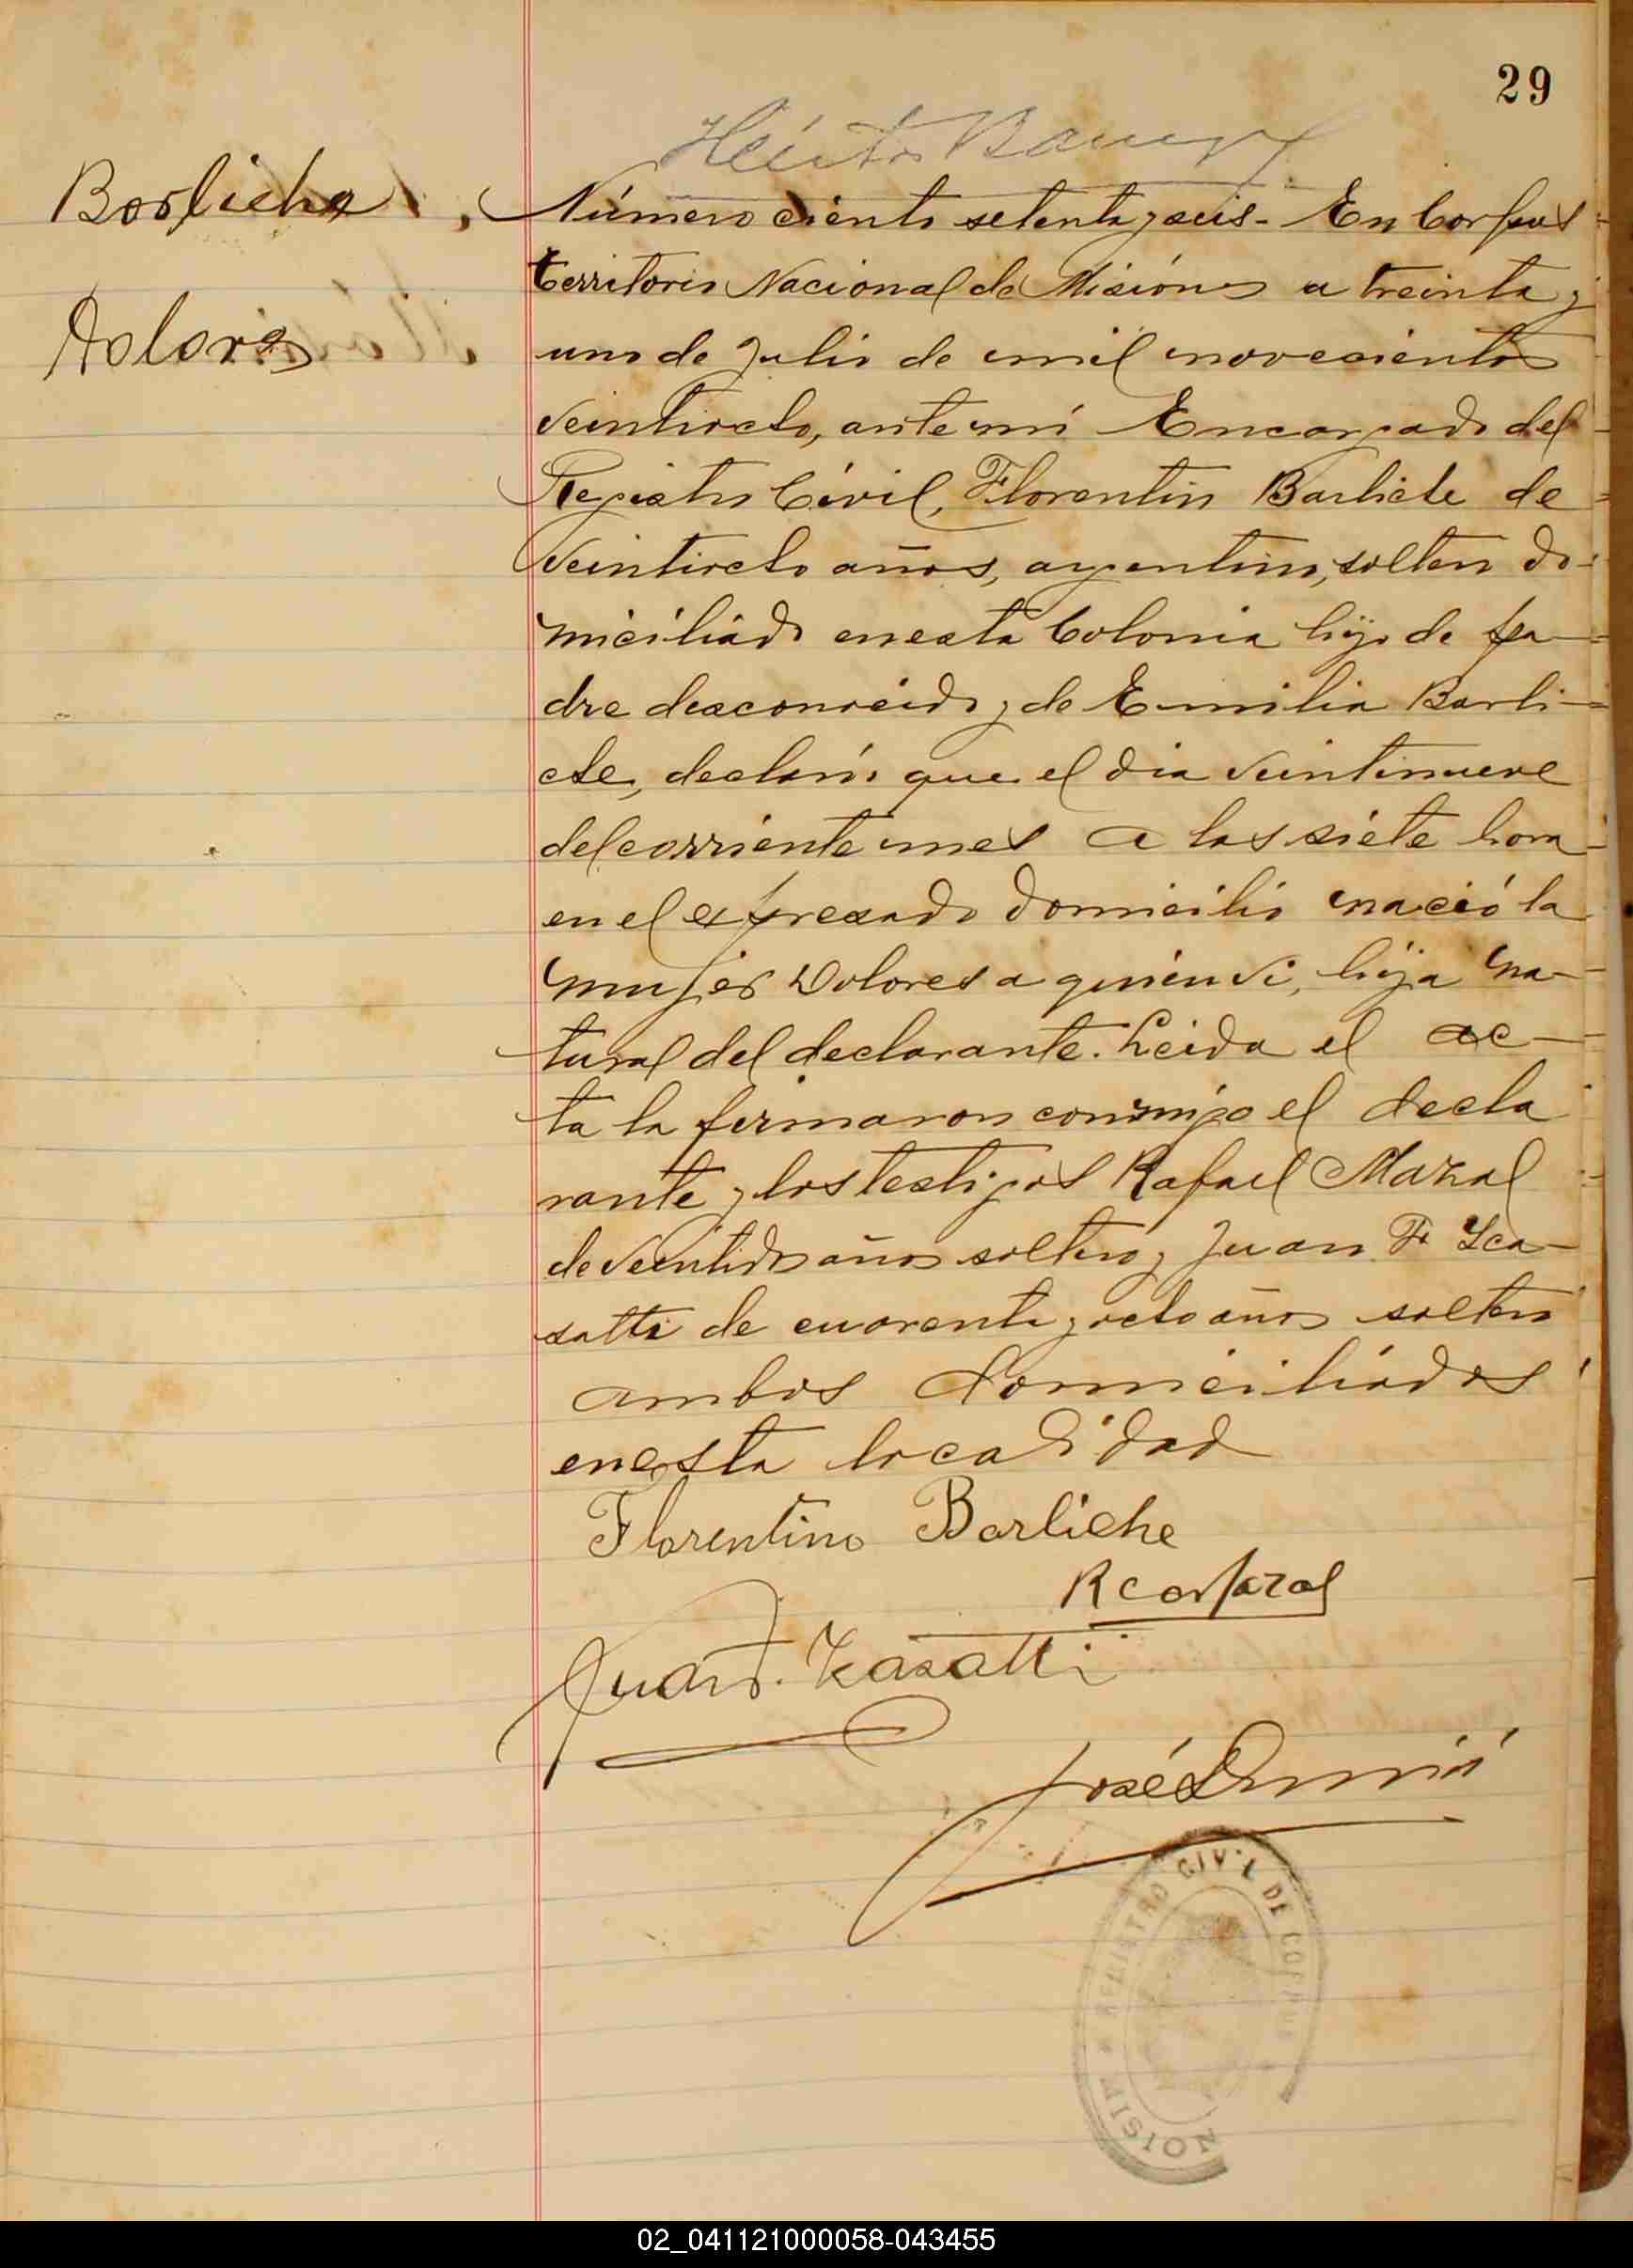 29
Borliche
Dolores
Número ciento setenta y seis - En Corpus
territorio Nacional de Misiónes a treinta y
uno de Julio de mil novecientos
veintiocho, ante mí Encargado del
Registro Civil, Florentin Barliche de
veintiocho años, argentino, soltero do-
miciliado en esta Colonia hijo de pa-
dre desconocido y de Emilia Barli-
che, declaró: que el dia veintinueve
del corriente mes a las siete hora
en el expresado domicilio nació la
mujer Dolores a quien vi, hija na-
tural del declarante. Leida el ac-
ta la firmaron conmigo el decla
rante y los testigos Rafael Mazal
de veintidos años soltero y Juan F Ica-
satti de cuarenta y ocho años soltero
ambos domiciliados
en esta localidad
Florentino Borliche
Juan F. Icasatti
José
REGISTRO CIVIL DE CORPUS
MISION
02_041121000058-043455